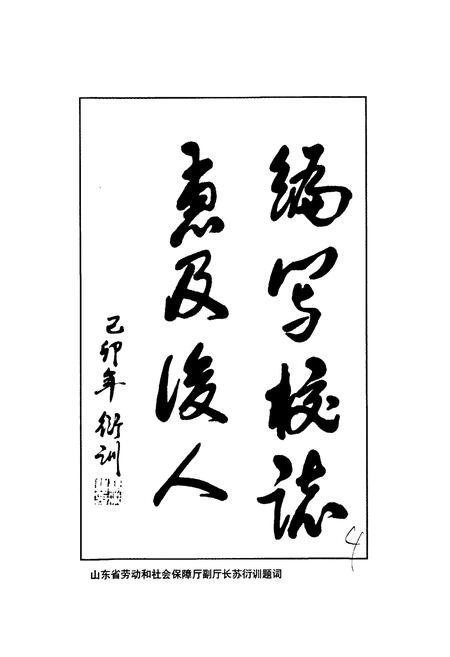 编写校誌
惠及後人
己卯年 衍训
山东省劳动和社会保障厅副厅长苏衍训题词
4